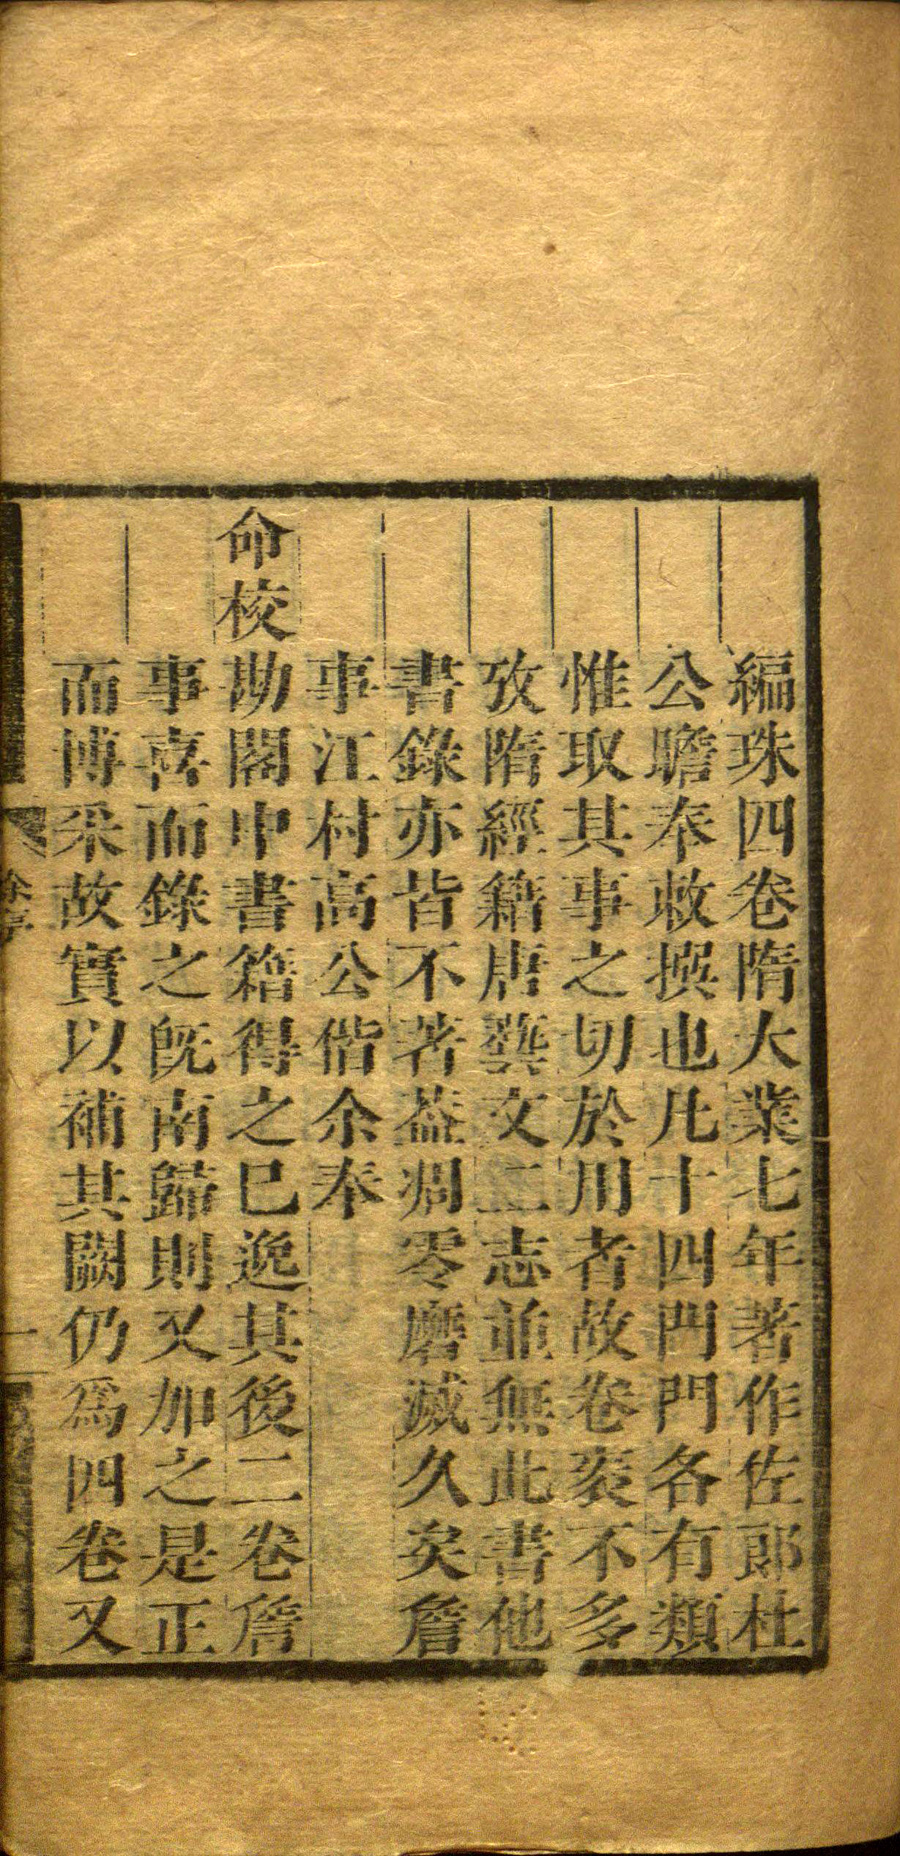 編珠四卷隋大業七年著作佐郎杜
公瞻奉敕撰也凡十四門門各有類
惟取其事之切於用者故卷袠不多
攷隋經籍唐藝文二志並無此書他
書錄亦皆不著葢凋零磨滅久矣詹
事江村高公偕余奉
命校勘閣中書籍得之已逸其後二卷詹
事喜而錄之旣南歸則又加之是正
而博采故實以補其闕仍爲四卷又
徐序
一